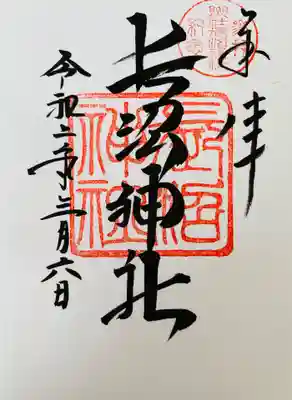 奉拝
長沼神社
令和二年三月六日
長沼
神社